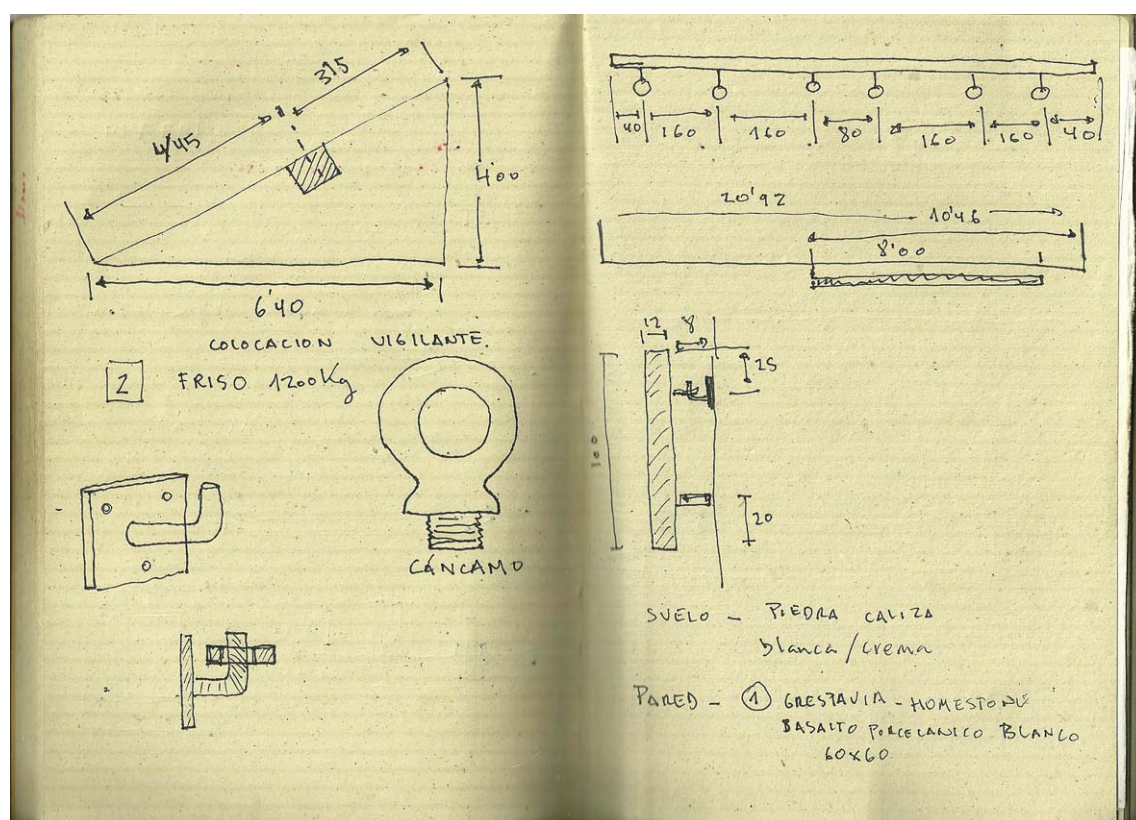 315
4'45
4'00
6'40
COLOCACION VIGILANTE.
2 FRISO 1200Kg
CÁNCAMO
40 160 160 80 160 160 40
20'92
10'46
8'00
12 8
25
100
20
SUELO - PIEDRA CALIZA
blanca/crema
PARED - 1 GRESPAVIA - HOMESTONE
BASALTO PORCELANICO BLANCO
60x60